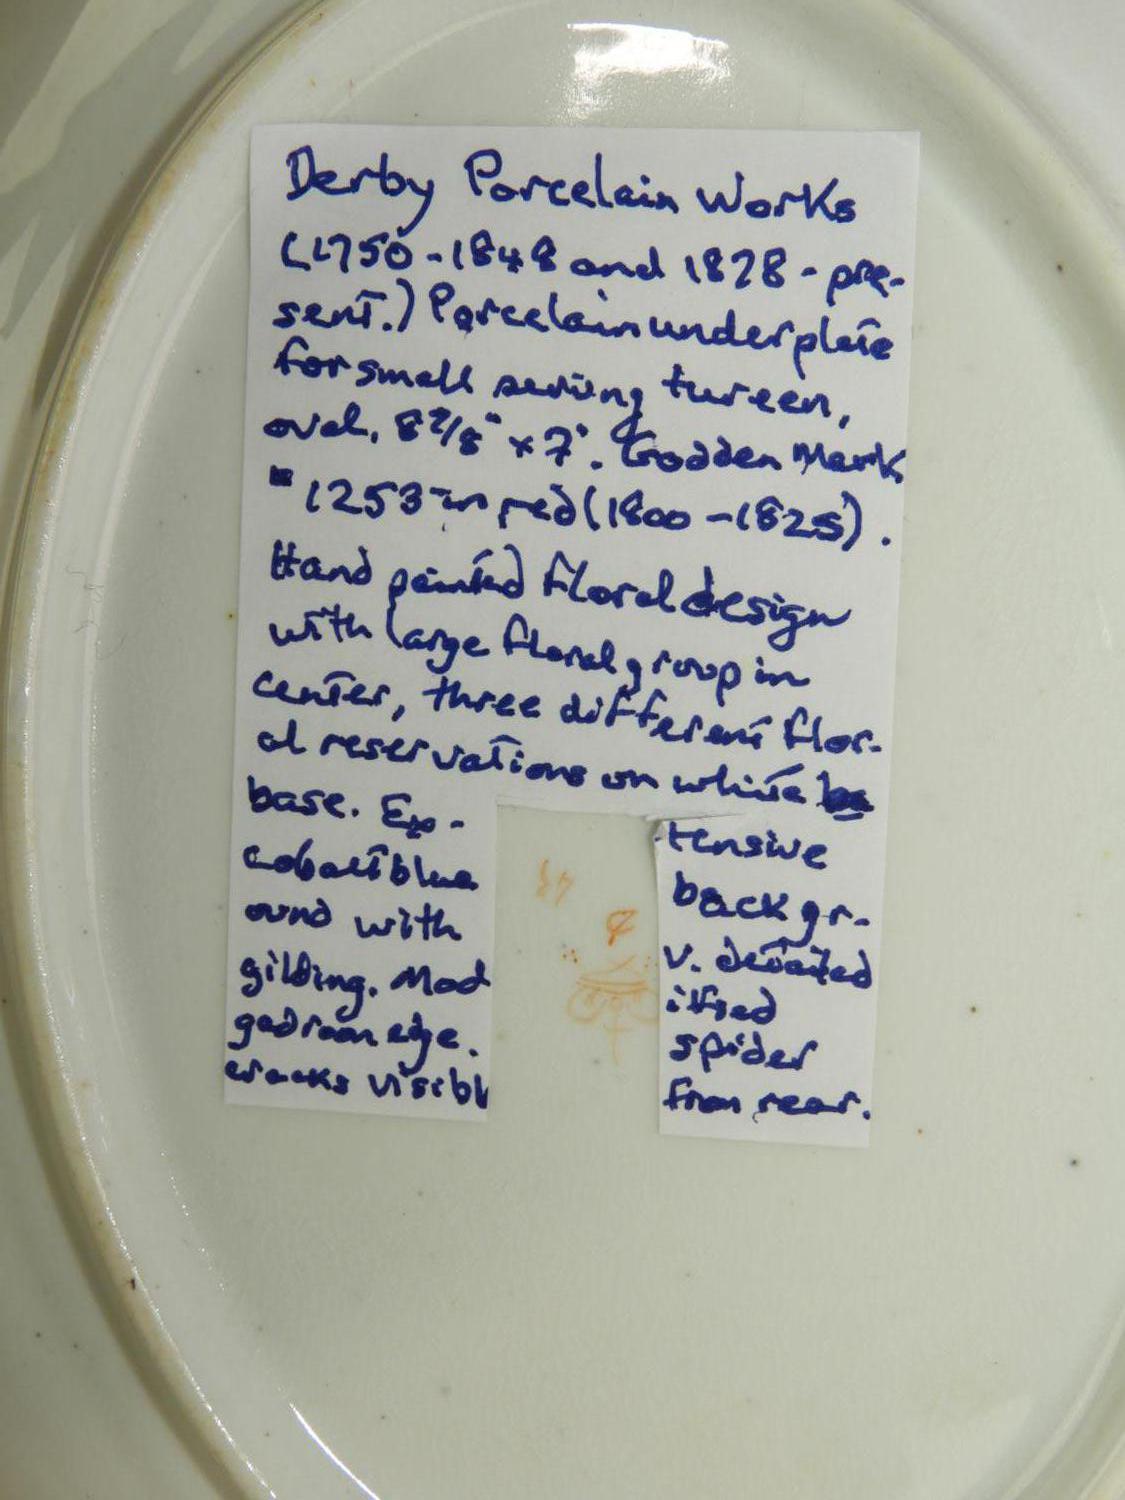 Derby Porcelain Works
(1750-1848 and 1878-pre-
sent.) Porcelain underplate
for small serving tureen,
oval, 8 7/8" x 7". Godden Mark
" 1253 in red (1800-1825).
Hand painted floral design
with large floral group in
center, three different flor-
al reservations on white
base. Ex- tensive
cobalt blue backgr-
ound with v. detailed
gilding. Mod ified
gadroon edge. spider
cracks visibl from rear.